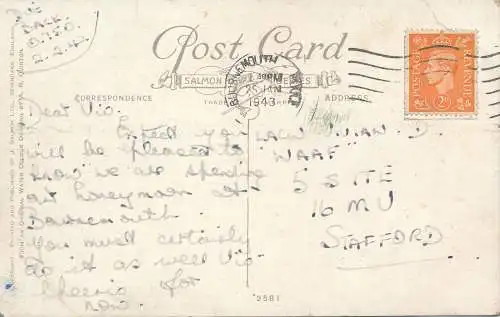 Post Card
SALMON SERIES
TRADE MARK
CORRESPONDENCE
ADDRESS
BOURNEMOUTH
25 JAN
1943
POSTAGE
REVENUE
2D
BACK
2.2.43
Dear Vic.
Expect you
will be pleased to
know we are spending
our honeymoon at
Bournemouth
You must certainly
do it as well Vic
Cheerio for
now.
LACW VIVIAN. D.
"WAAF"
5 SITE
16 MU
STAFFORD
2581